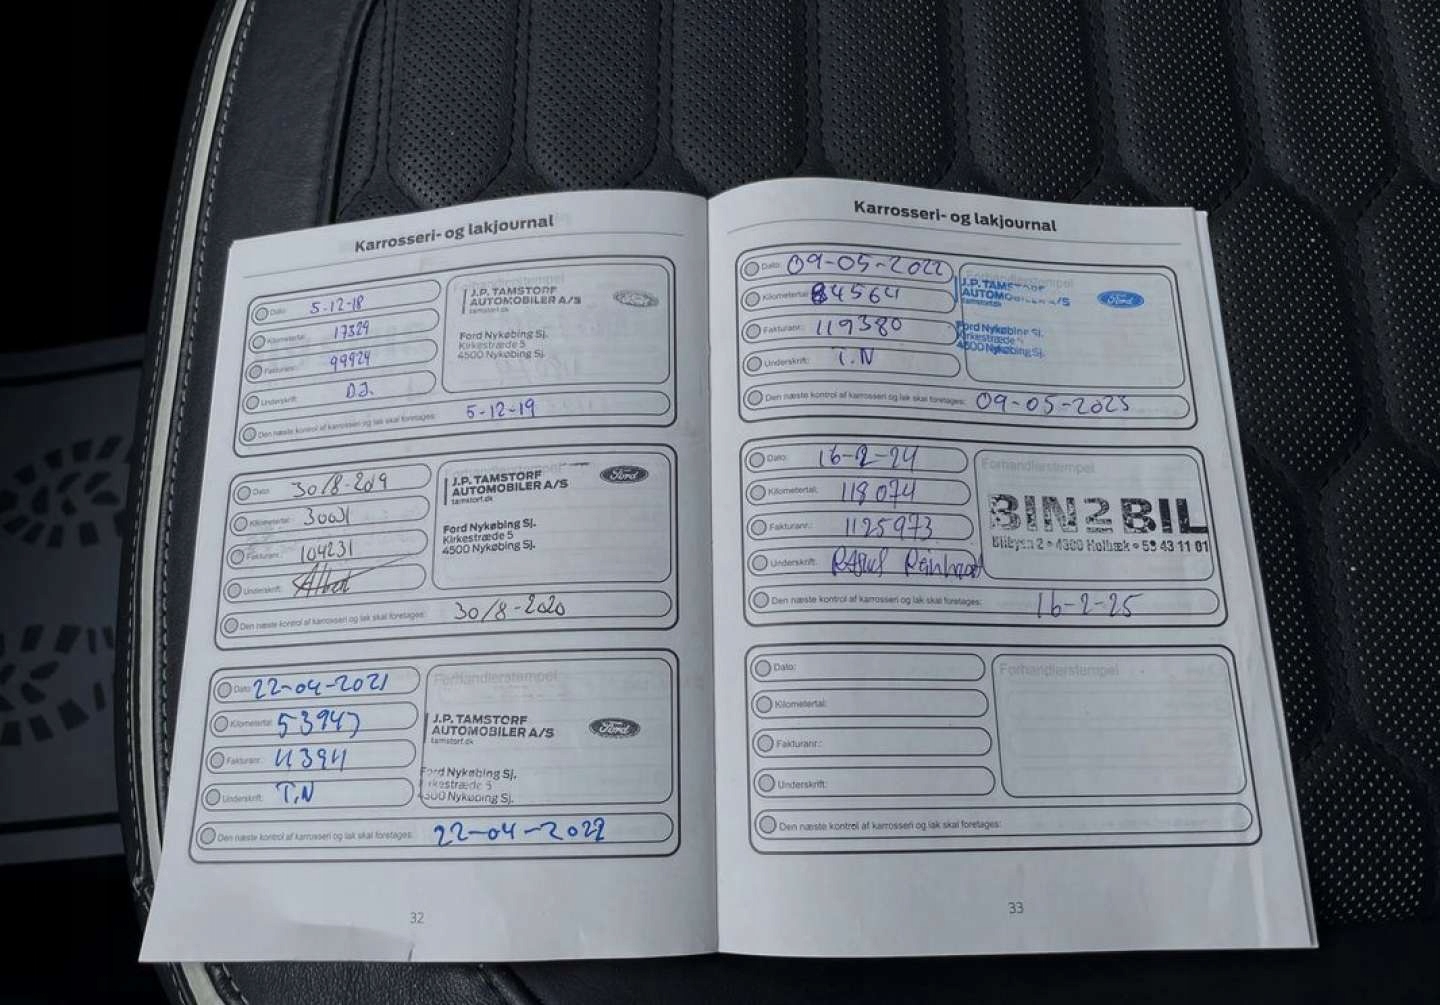 Karrosseri- og lakjournal
Dato: 5-12-18
Kilometertal: 17329
Fakturanr.: 99924
Underskrift: D.J.
Forhandlerstempel
J.P. TAMSTORF
AUTOMOBILER A/S
tamstorf.dk
Ford Nykøbing Sj.
Kirkestræde 5
4500 Nykøbing Sj.
Den næste kontrol af karrosseri og lak skal foretages: 5-12-19
Dato: 30/8-2019
Kilometertal: 30031
Fakturanr.: 104231
Underskrift:
J.P. TAMSTORF
AUTOMOBILER A/S
tamstorf.dk
Ford
Ford Nykøbing Sj.
Kirkestræde 5
4500 Nykøbing Sj.
Den næste kontrol af karrosseri og lak skal foretages: 30/8-2020
Dato: 22-04-2021
Kilometertal: 53947
Fakturanr.: 113911
Underskrift: T.N
Forhandlerstempel
J.P. TAMSTORF
AUTOMOBILER A/S
tamstorf.dk
Ford
Ford Nykøbing Sj.
Kirkestræde 5
4500 Nykøbing Sj.
Den næste kontrol af karrosseri og lak skal foretages: 22-04-2022
32
Karrosseri- og lakjournal
Dato: 09-05-2022
Kilometertal: 84564
Fakturanr.: 119380
Underskrift: T.N
Forhandlerstempel
J.P. TAMSTORF
AUTOMOBILER A/S
tamstorf.dk
Ford
Ford Nykøbing Sj.
Kirkestræde
4500 Nykøbing Sj.
Den næste kontrol af karrosseri og lak skal foretages: 09-05-2023
Dato: 16-2-24
Kilometertal: 118074
Fakturanr.: 1125973
Underskrift:
Forhandlerstempel
BIN2BIL
2 • 4300 Holbæk • 59 43 11 01
Den næste kontrol af karrosseri og lak skal foretages: 16-2-25
Dato:
Kilometertal:
Fakturanr.:
Underskrift:
Forhandlerstempel
Den næste kontrol af karrosseri og lak skal foretages:
33